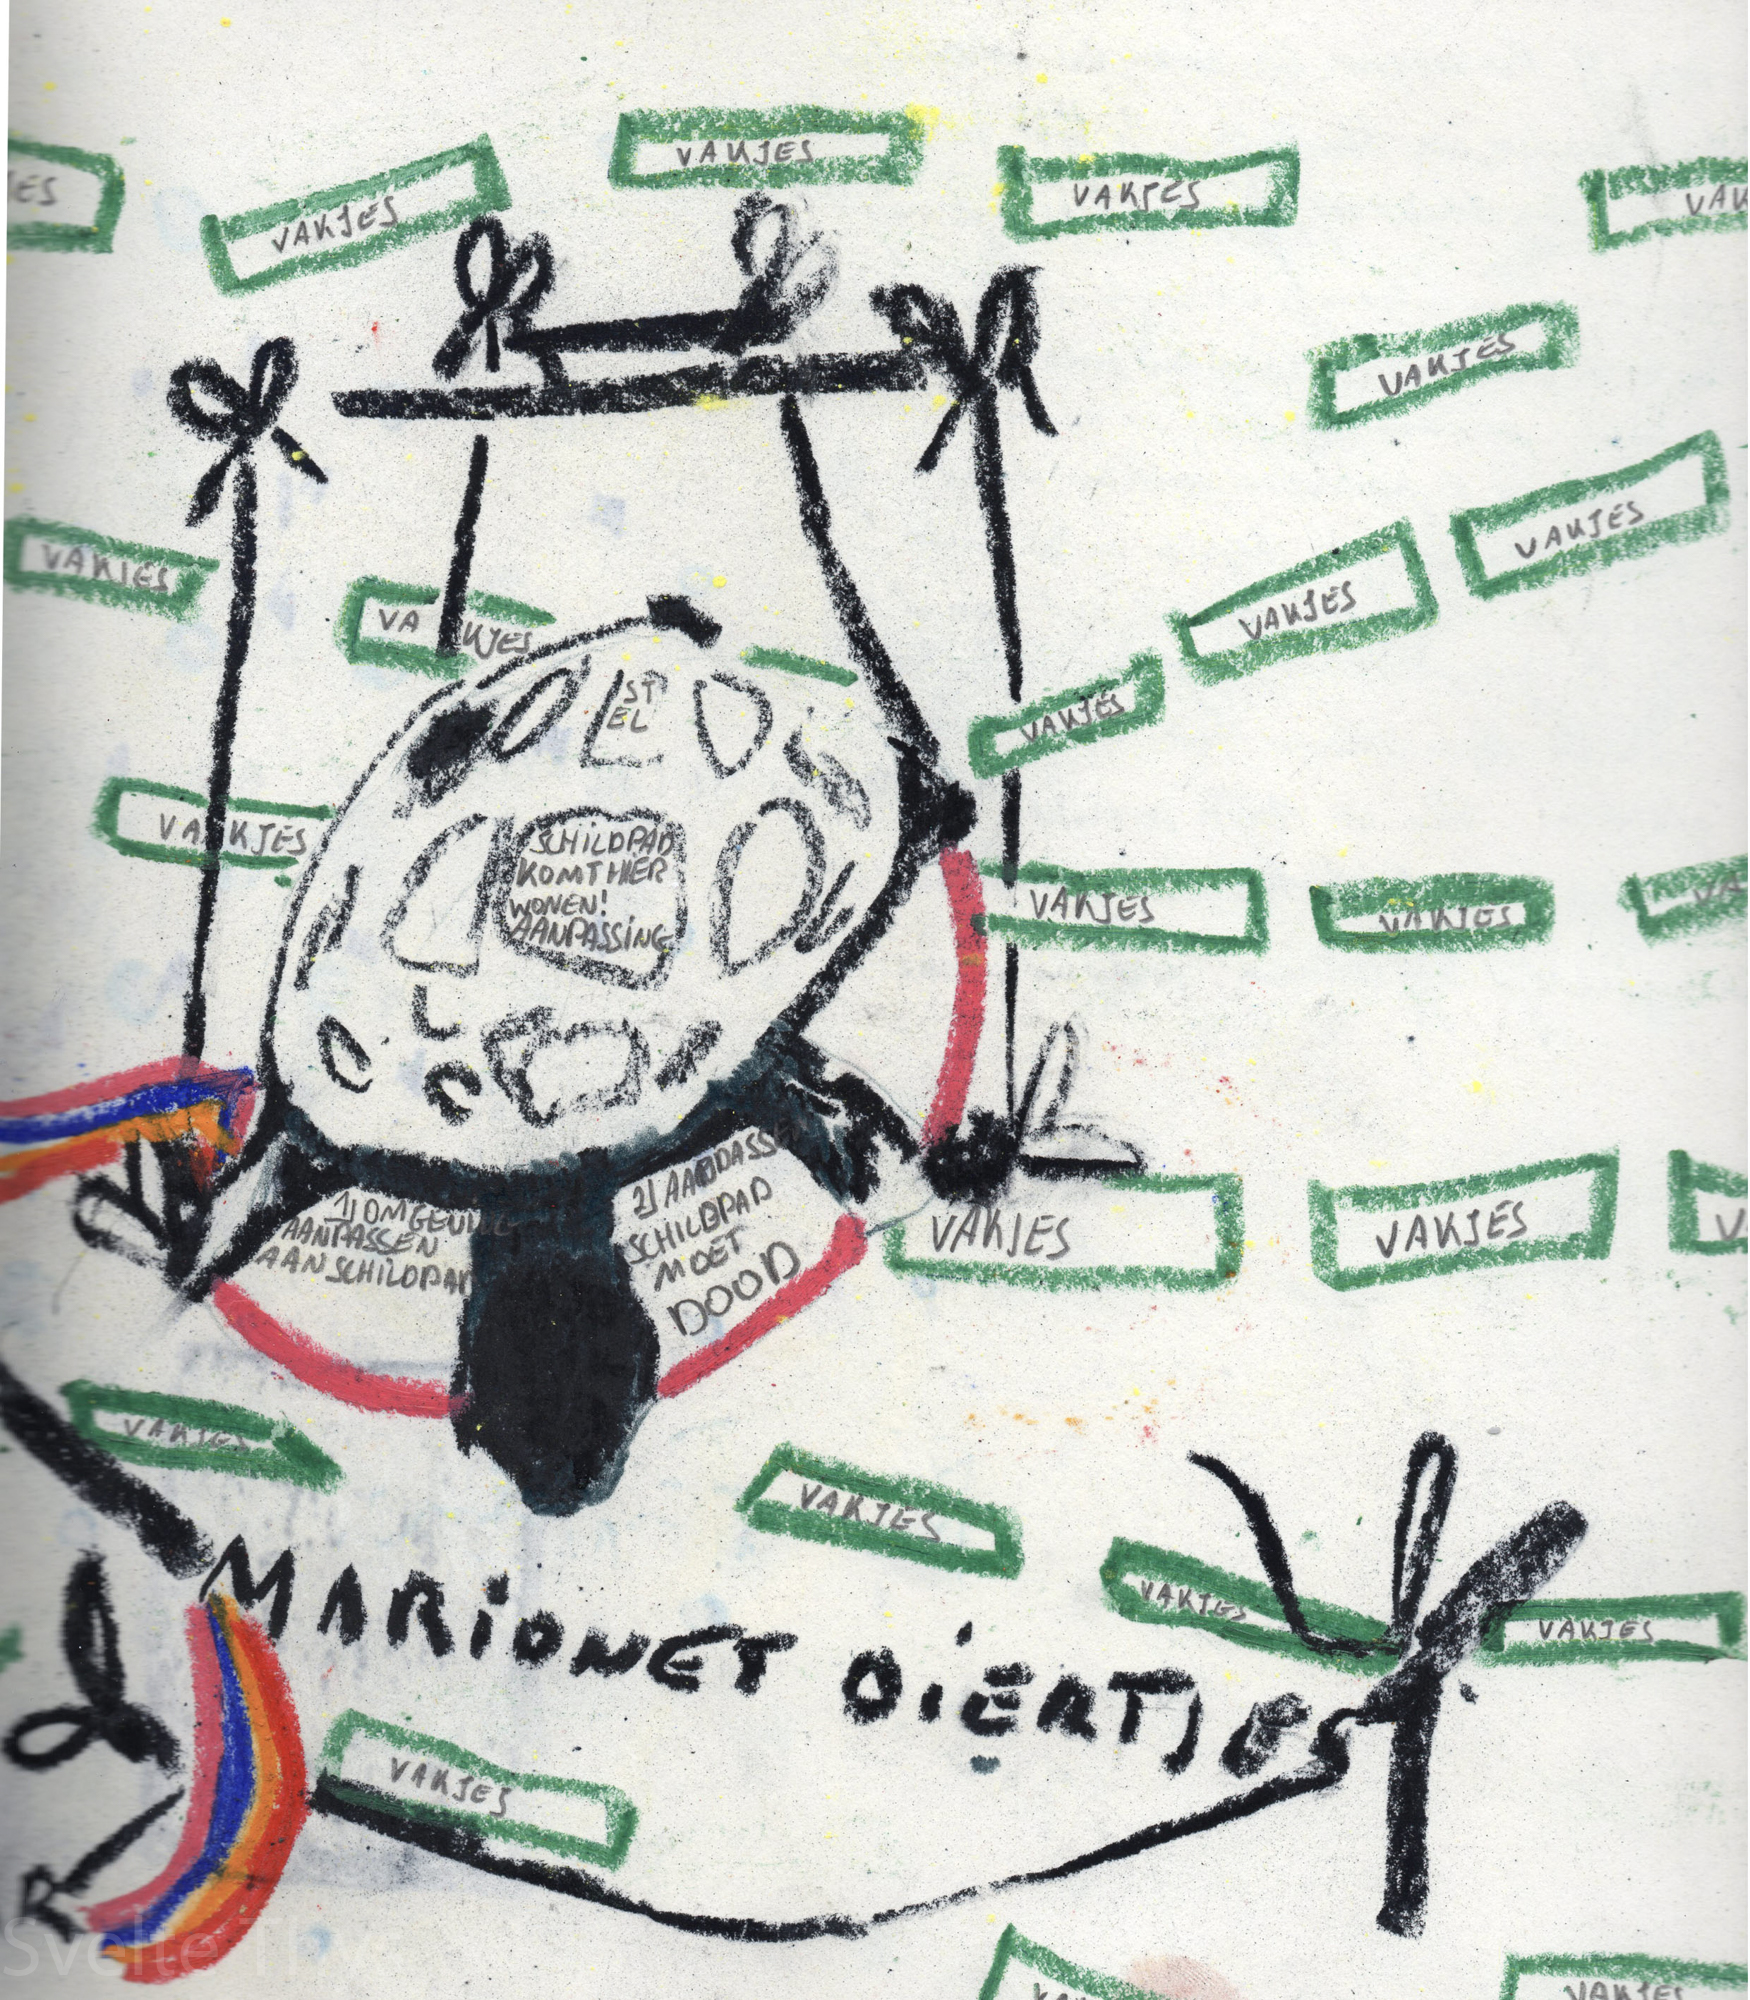 VAKJES
VAKJES
VAKJES
VAKJES
VAKJES
VAKJES
VAKJES
VAKJES
VAKJES
VAKJES
VAKJES
ST
EL
VAKJES
SCHILDPAD
KOMT HIER
WONEN!
AANPASSING
VAKJES
VAKJES
1) OMGEVING
AANPASSEN
AAN SCHILDPAD
2) AANPASSEN
SCHILDPAD
MOET
DOOD
VAKJES
VAKJES
VAKJES
VAKJES
VAKJES
VAKJES
MARIONET DIERTJES
VAKJES
VAKJES
Svelte